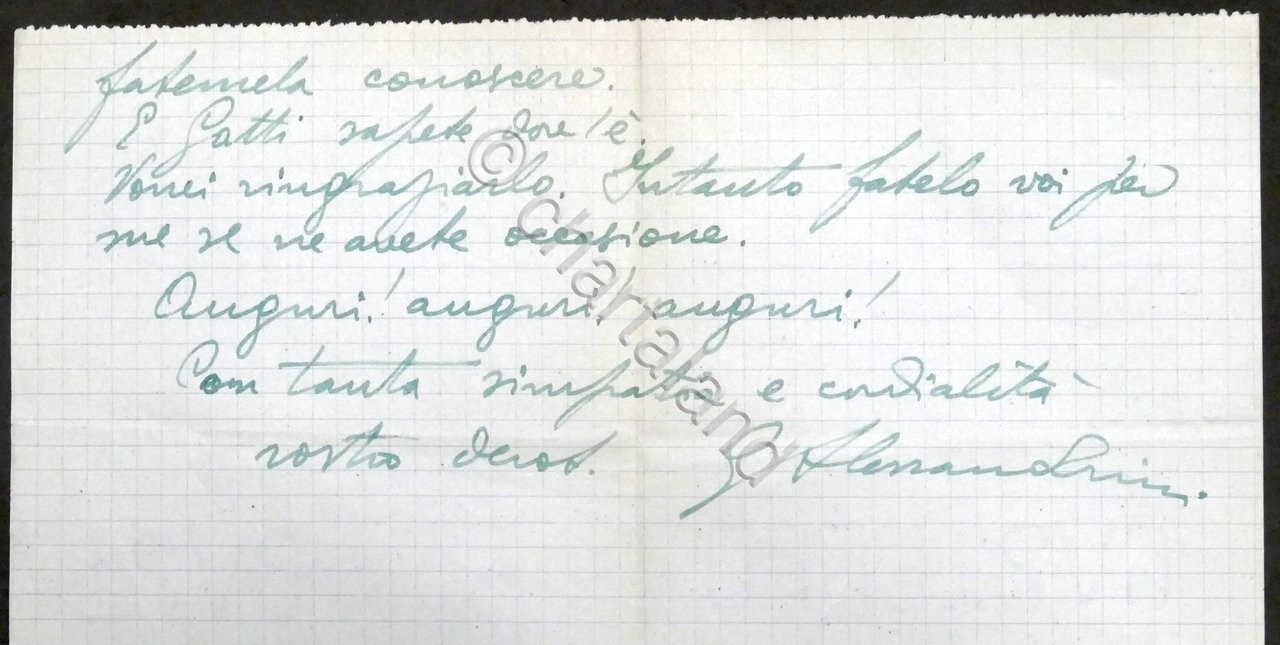 fatemela conoscere.
E Gatti sapete dov'è.
Vorrei ringraziarlo. Intanto fatelo voi per
me se ne avete occasione.
Auguri! auguri! auguri!
Con tanta simpatia e cordialità
vostro devot. G. Alessandrini.
© chartaland